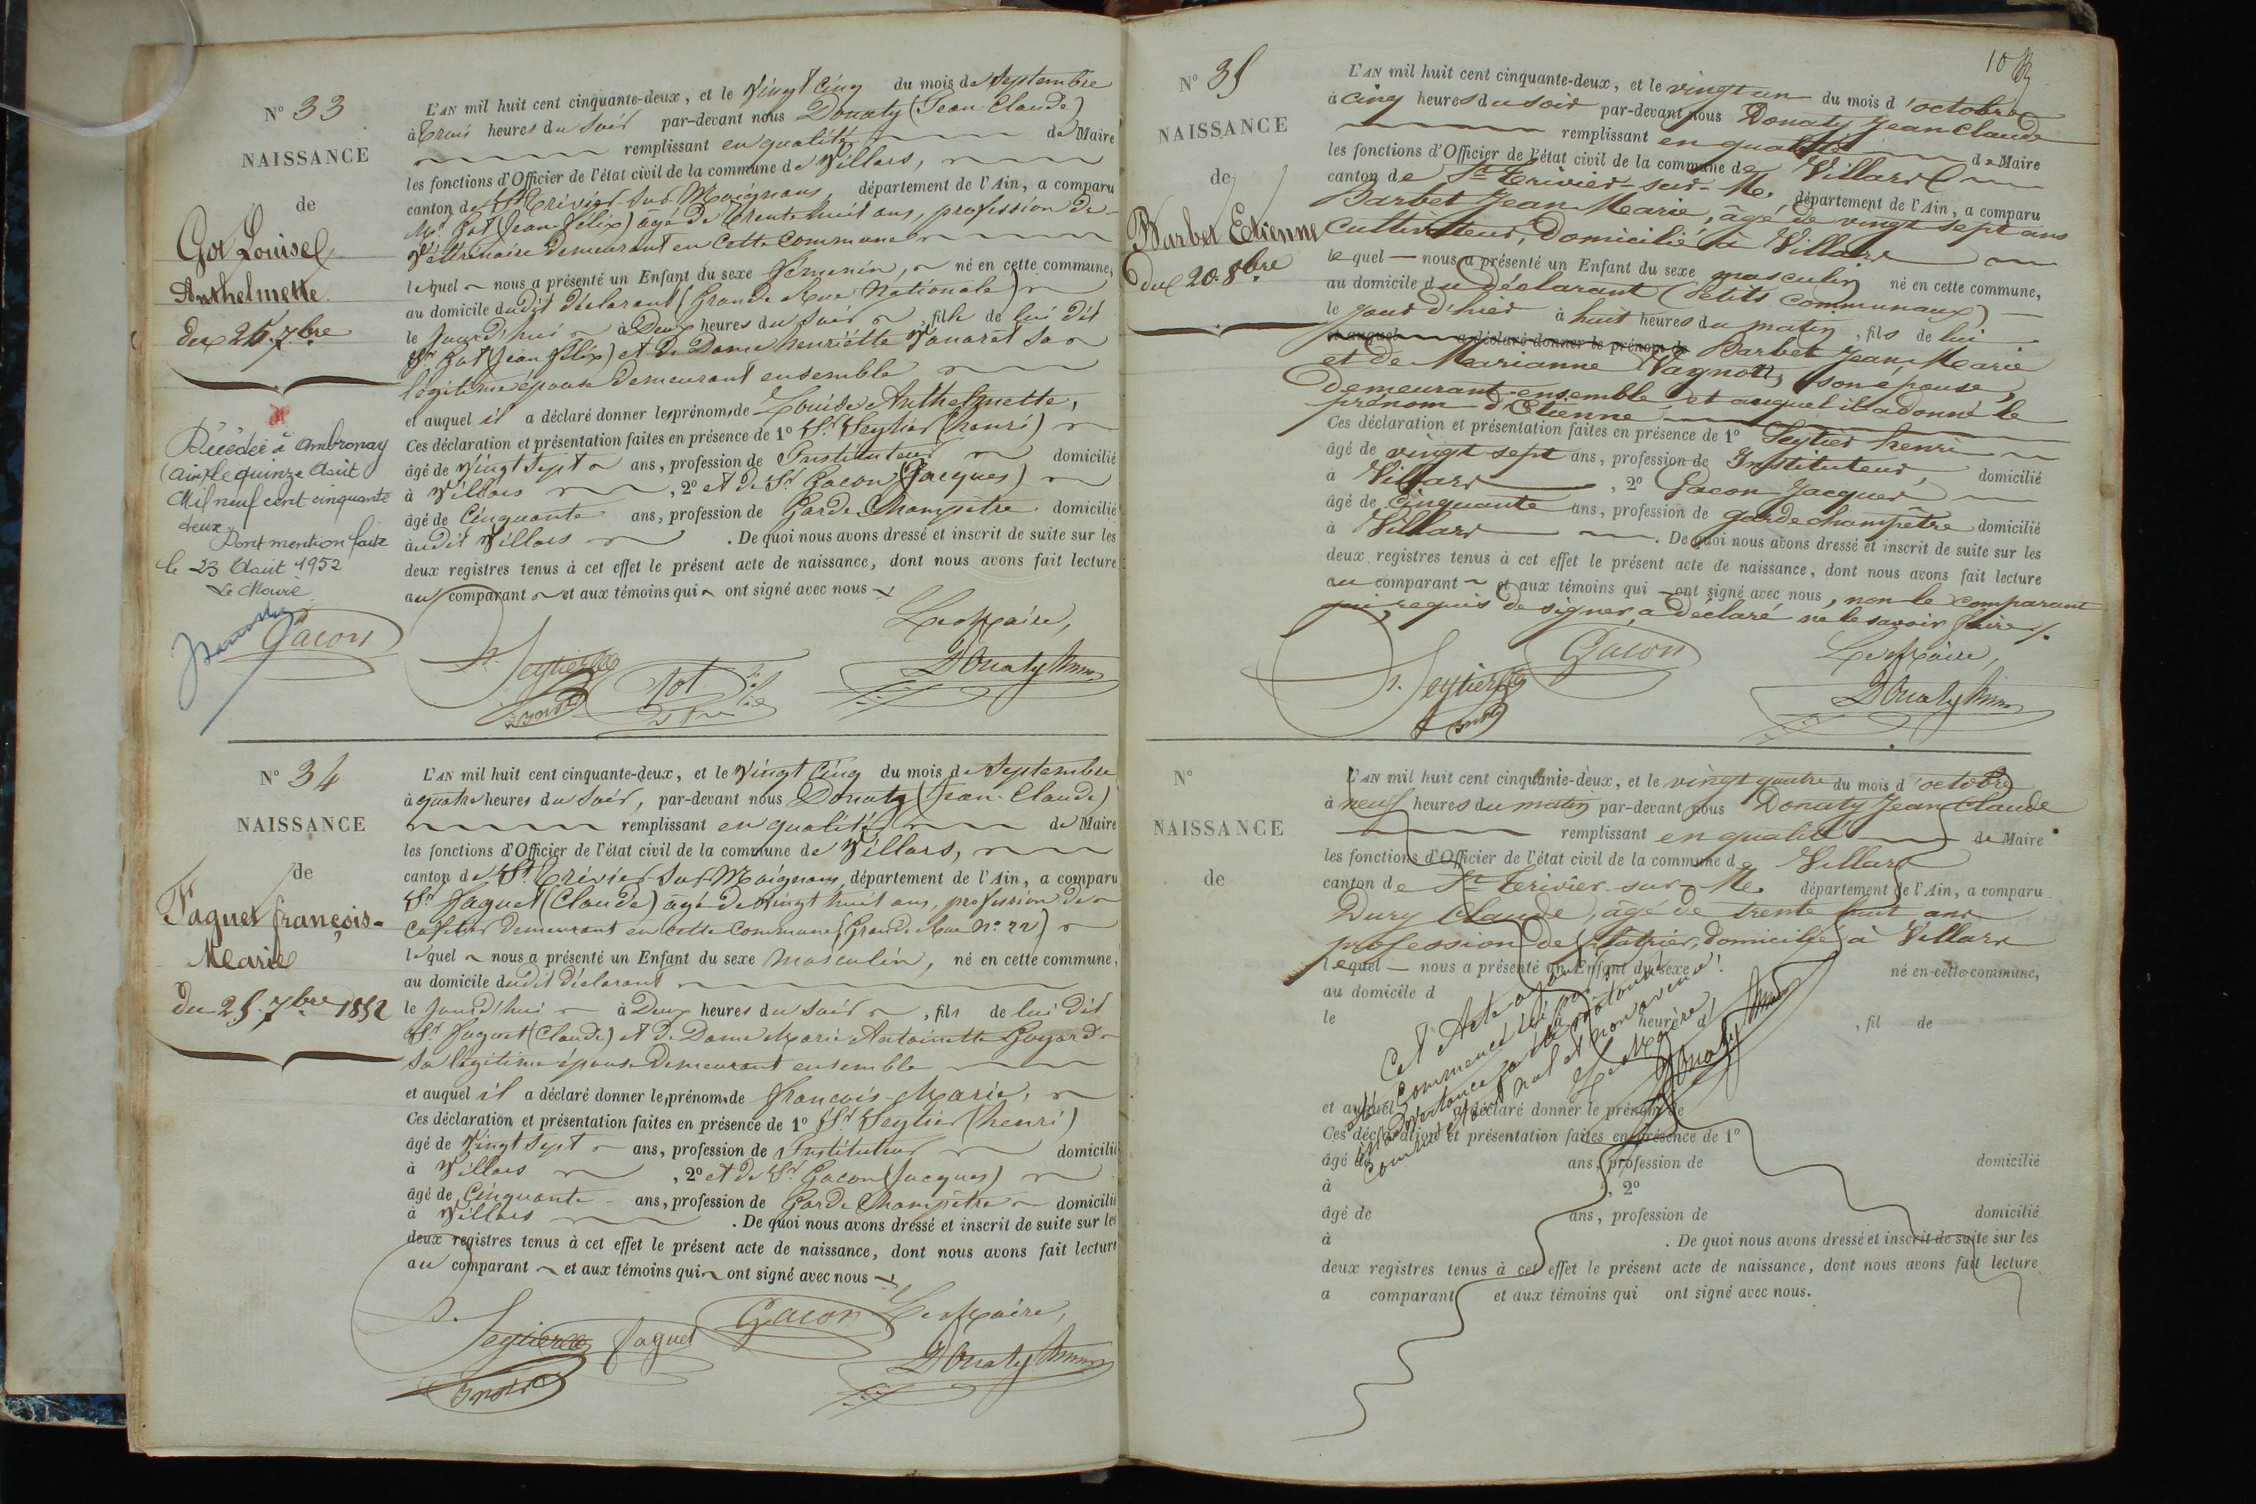 N° 33
NAISSANCE
de
Got Louise
Anthelmette
du 25. 7bre
Décédée à Ambronay
(Ain) le quinze Août
Mil neuf cent cinquante
deux.
Dont mention faite
le 23 Août 1952
Le Maire
Gacon
L'AN mil huit cent cinquante-deux, et le Vingt Cinq du mois de Septembre
à trois heures du Soir par-devant nous Donaty (Jean Claude)
remplissant en qualité de Maire
les fonctions d'Officier de l'état civil de la commune de Villars,
canton de St Trivier sur Moignans, département de l'Ain, a comparu
Mr Got (Jean Félix) agé de trente huit ans, profession de
Vétérinaire demeurant en cette commune
lequel nous a présenté un Enfant du sexe féminin, né en cette commune,
au domicile dudit déclarant (Grande Rue Nationale)
le Jourd'hui à Deux heures du Soir, fille de lui dit
Sr Got (Jean Félix) et de Dame henriette sa
légitime épouse demeurant ensemble
et auquel il a déclaré donner les prénoms de Louise Anthelmette,
Ces déclaration et présentation faites en présence de 1° Sr Seytier (henri)
âgé de Vingt Sept ans, profession de Instituteur domicilié
à Villars, 2° et de Sr Gacon (Jacques)
âgé de Cinquante ans, profession de Garde Champêtre domicilié
audit Villars. De quoi nous avons dressé et inscrit de suite sur les
deux registres tenus à cet effet le présent acte de naissance, dont nous avons fait lecture
au comparant et aux témoins qui ont signé avec nous
Le Maire,
h. Seytier Got Donaty
N° 34
NAISSANCE
de
Faguet françois-
Marie
du 25. 7bre 1852
L'AN mil huit cent cinquante-deux, et le Vingt Cinq du mois de Septembre
à quatre heures du Soir, par-devant nous Donaty (Jean-Claude)
remplissant en qualité de Maire
les fonctions d'Officier de l'état civil de la commune de Villars,
canton de St Trivier sur Moignans, département de l'Ain, a comparu
Sr Faguet (Claude) agé de vingt huit ans, profession de
Cafetier demeurant en cette commune (Grande Rue No 22)
lequel nous a présenté un Enfant du sexe Masculin, né en cette commune,
au domicile dudit déclarant
le Jourd'hui à Deux heures du Soir, fils de lui dit
Sr Faguet (Claude) et de Dame Marie Antoinette Goyard
Sa légitime épouse Demeurant ensemble
et auquel il a déclaré donner les prénoms de françois-Marie,
Ces déclaration et présentation faites en présence de 1° Sr Seytier (henri)
âgé de Vingt Sept ans, profession de Instituteur domicilié
à Villars, 2° et de Sr Gacon (Jacques)
âgé de Cinquante ans, profession de Garde Champêtre domicilié
à Villars. De quoi nous avons dressé et inscrit de suite sur les
deux registres tenus à cet effet le présent acte de naissance, dont nous avons fait lecture
au comparant et aux témoins qui ont signé avec nous
Le Maire,
h. Seytier faguet Gacon Donaty
10
N° 35
NAISSANCE
de
Barbet Etienne
du 20. 8bre
L'AN mil huit cent cinquante-deux, et le vingt un du mois d'octobre
à cinq heures du soir par-devant nous Donaty Jean Claude
remplissant en qualité de Maire
les fonctions d'Officier de l'état civil de la commune de Villars
canton de St Trivier-sur-M., département de l'Ain, a comparu
Barbet Jean Marie, âgé de vingt sept ans
cultivateur, domicilié à Villars
lequel nous a présenté un Enfant du sexe masculin né en cette commune,
au domicile du déclarant (Petits communaux)
le jour d'hier à huit heures du matin, fils de lui
et auquel a déclaré donner le prénom de Barbet Jean Marie
et de Marianne Vagnon, son épouse,
demeurant ensemble et auquel il a donné le
prénom d'Etienne
Ces déclaration et présentation faites en présence de 1° Seytier henri
âgé de vingt sept ans, profession de Instituteur, domicilié
à Villars, 2° Gacon Jacques
âgé de Cinquante ans, profession de garde champêtre domicilié
à Villars. De quoi nous avons dressé et inscrit de suite sur les
deux registres tenus à cet effet le présent acte de naissance, dont nous avons fait lecture
au comparant et aux témoins qui ont signé avec nous, non le comparant
qui, requis de signer, a déclaré ne le savoir faire /.
Le Maire,
h. Seytier Gacon Donaty
N°
NAISSANCE
de
L'AN mil huit cent cinquante-deux, et le vingt quatre du mois d'octobre
à neuf heures du matin par-devant nous Donaty Jean Claude
remplissant en qualité de Maire
les fonctions d'Officier de l'état civil de la commune de Villars
canton de St Trivier-sur-M. département de l'Ain, a comparu
Dury Claude, âgé de trente huit ans
profession de Platrier, domicilié à Villars
lequel nous a présenté un Enfant du sexe né en cette commune,
au domicile d
le heures d , fil de
Cet Acte ayant
été commencé ici par
inadvertance
comme étant nul et non avenu.
Le Maire,
Donaty
et auquel a déclaré donner le prénom de
Ces déclaration et présentation faites en présence de 1°
âgé de ans, profession de domicilié
à , 2°
âgé de ans, profession de domicilié
à . De quoi nous avons dressé et inscrit de suite sur les
deux registres tenus à cet effet le présent acte de naissance, dont nous avons fait lecture
a comparant et aux témoins qui ont signé avec nous.